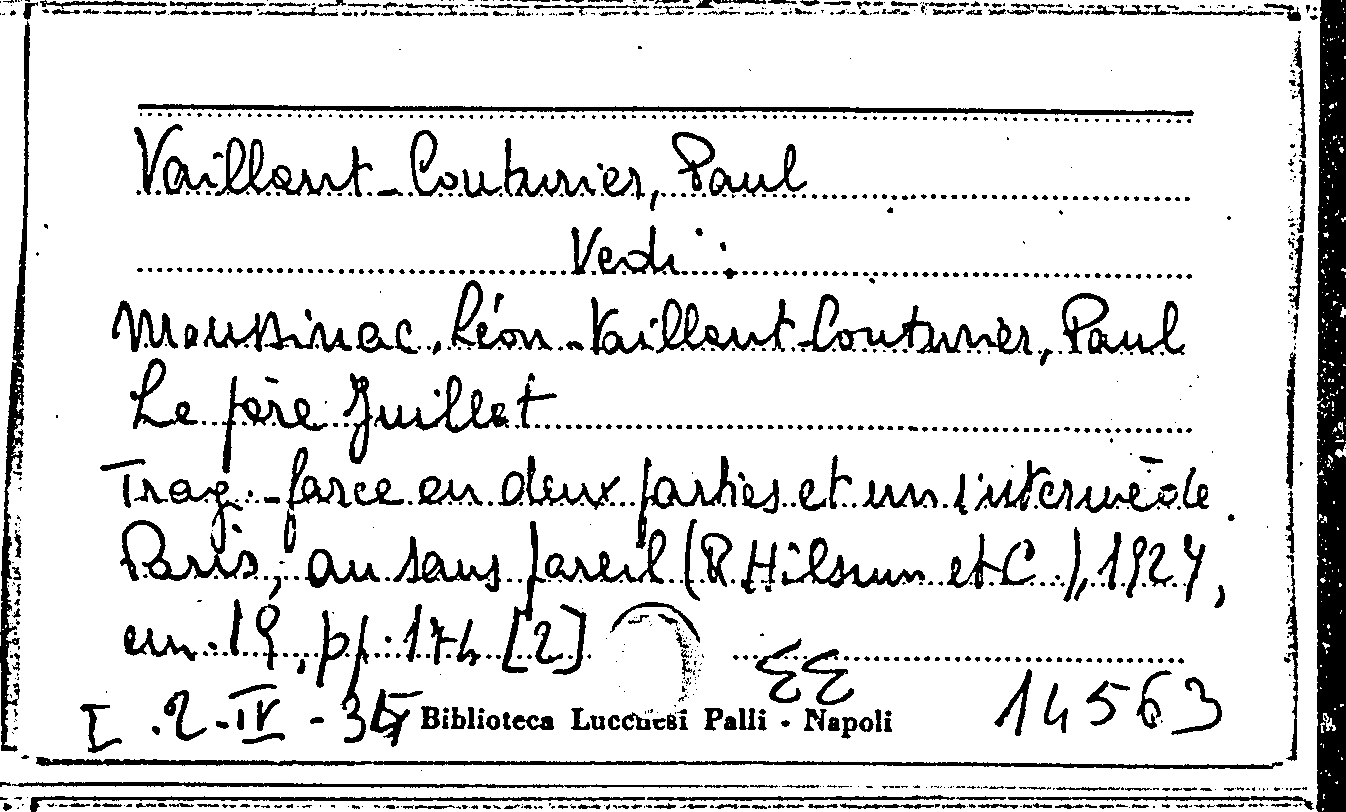 Vaillant-Couturier, Paul
Vedi:
Moussinac, Léon-Vaillant-Couturier, Paul
Le père Juillet
Trag.-farce en deux parties et un intermède.
Paris, au sans pareil (R. Hilsum et C.), 1927,
cm. 19, pp. 174 [2]
I.2-IV-
Biblioteca Lucchesi Palli - Napoli
14563